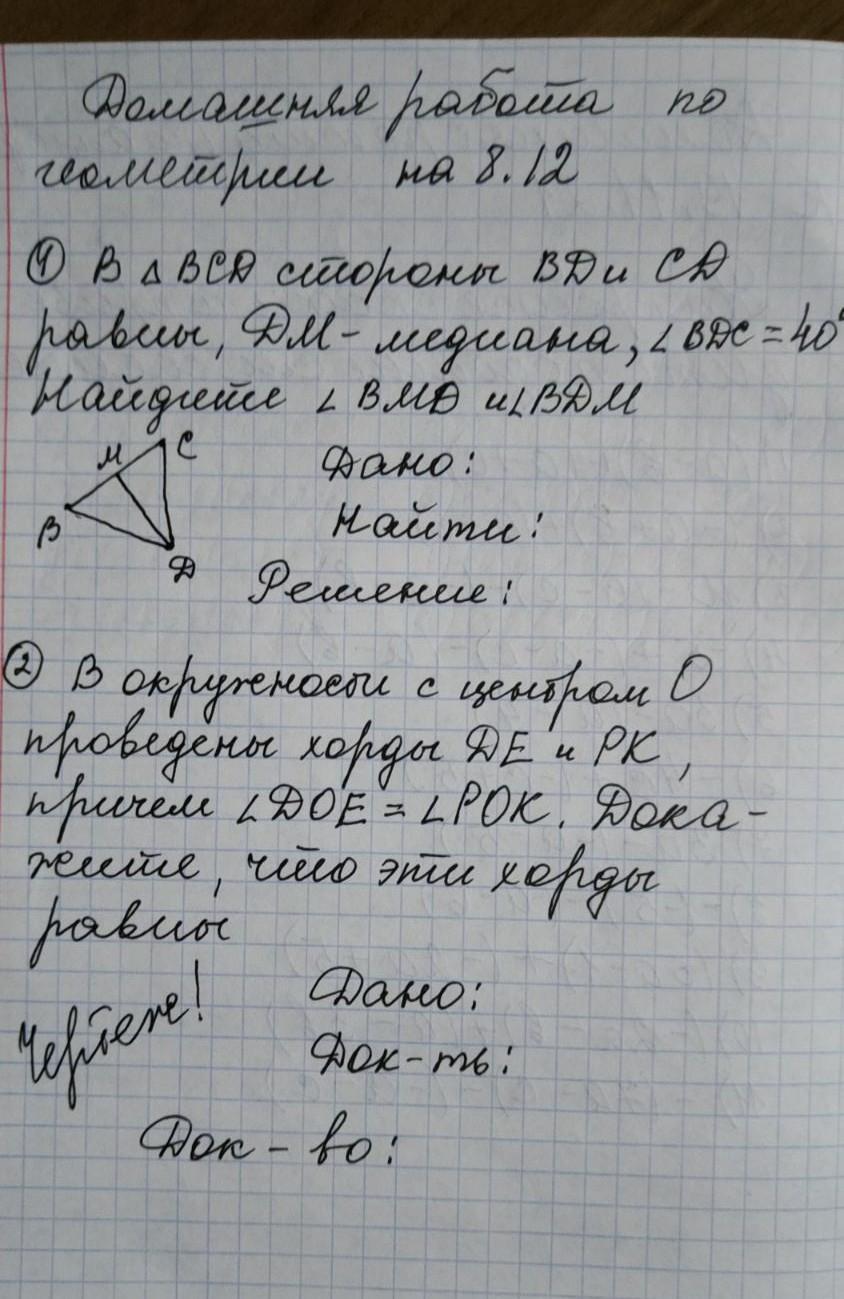 Домашняя работа по
геометрии на 8.12
① В △ BCD стороны BD и CD
равны, DM - медиана, ∠ BDC = 40°
Найдите ∠ BMD и ∠BDM
M C
B
D
Дано:
Найти:
Решение:
② В окружности с центром O
проведены хорды DE и PK,
причем ∠DOE = ∠POK. Дока-
жите, что эти хорды
равны
Чертеж!
Дано:
Док-ть:
Док-во: